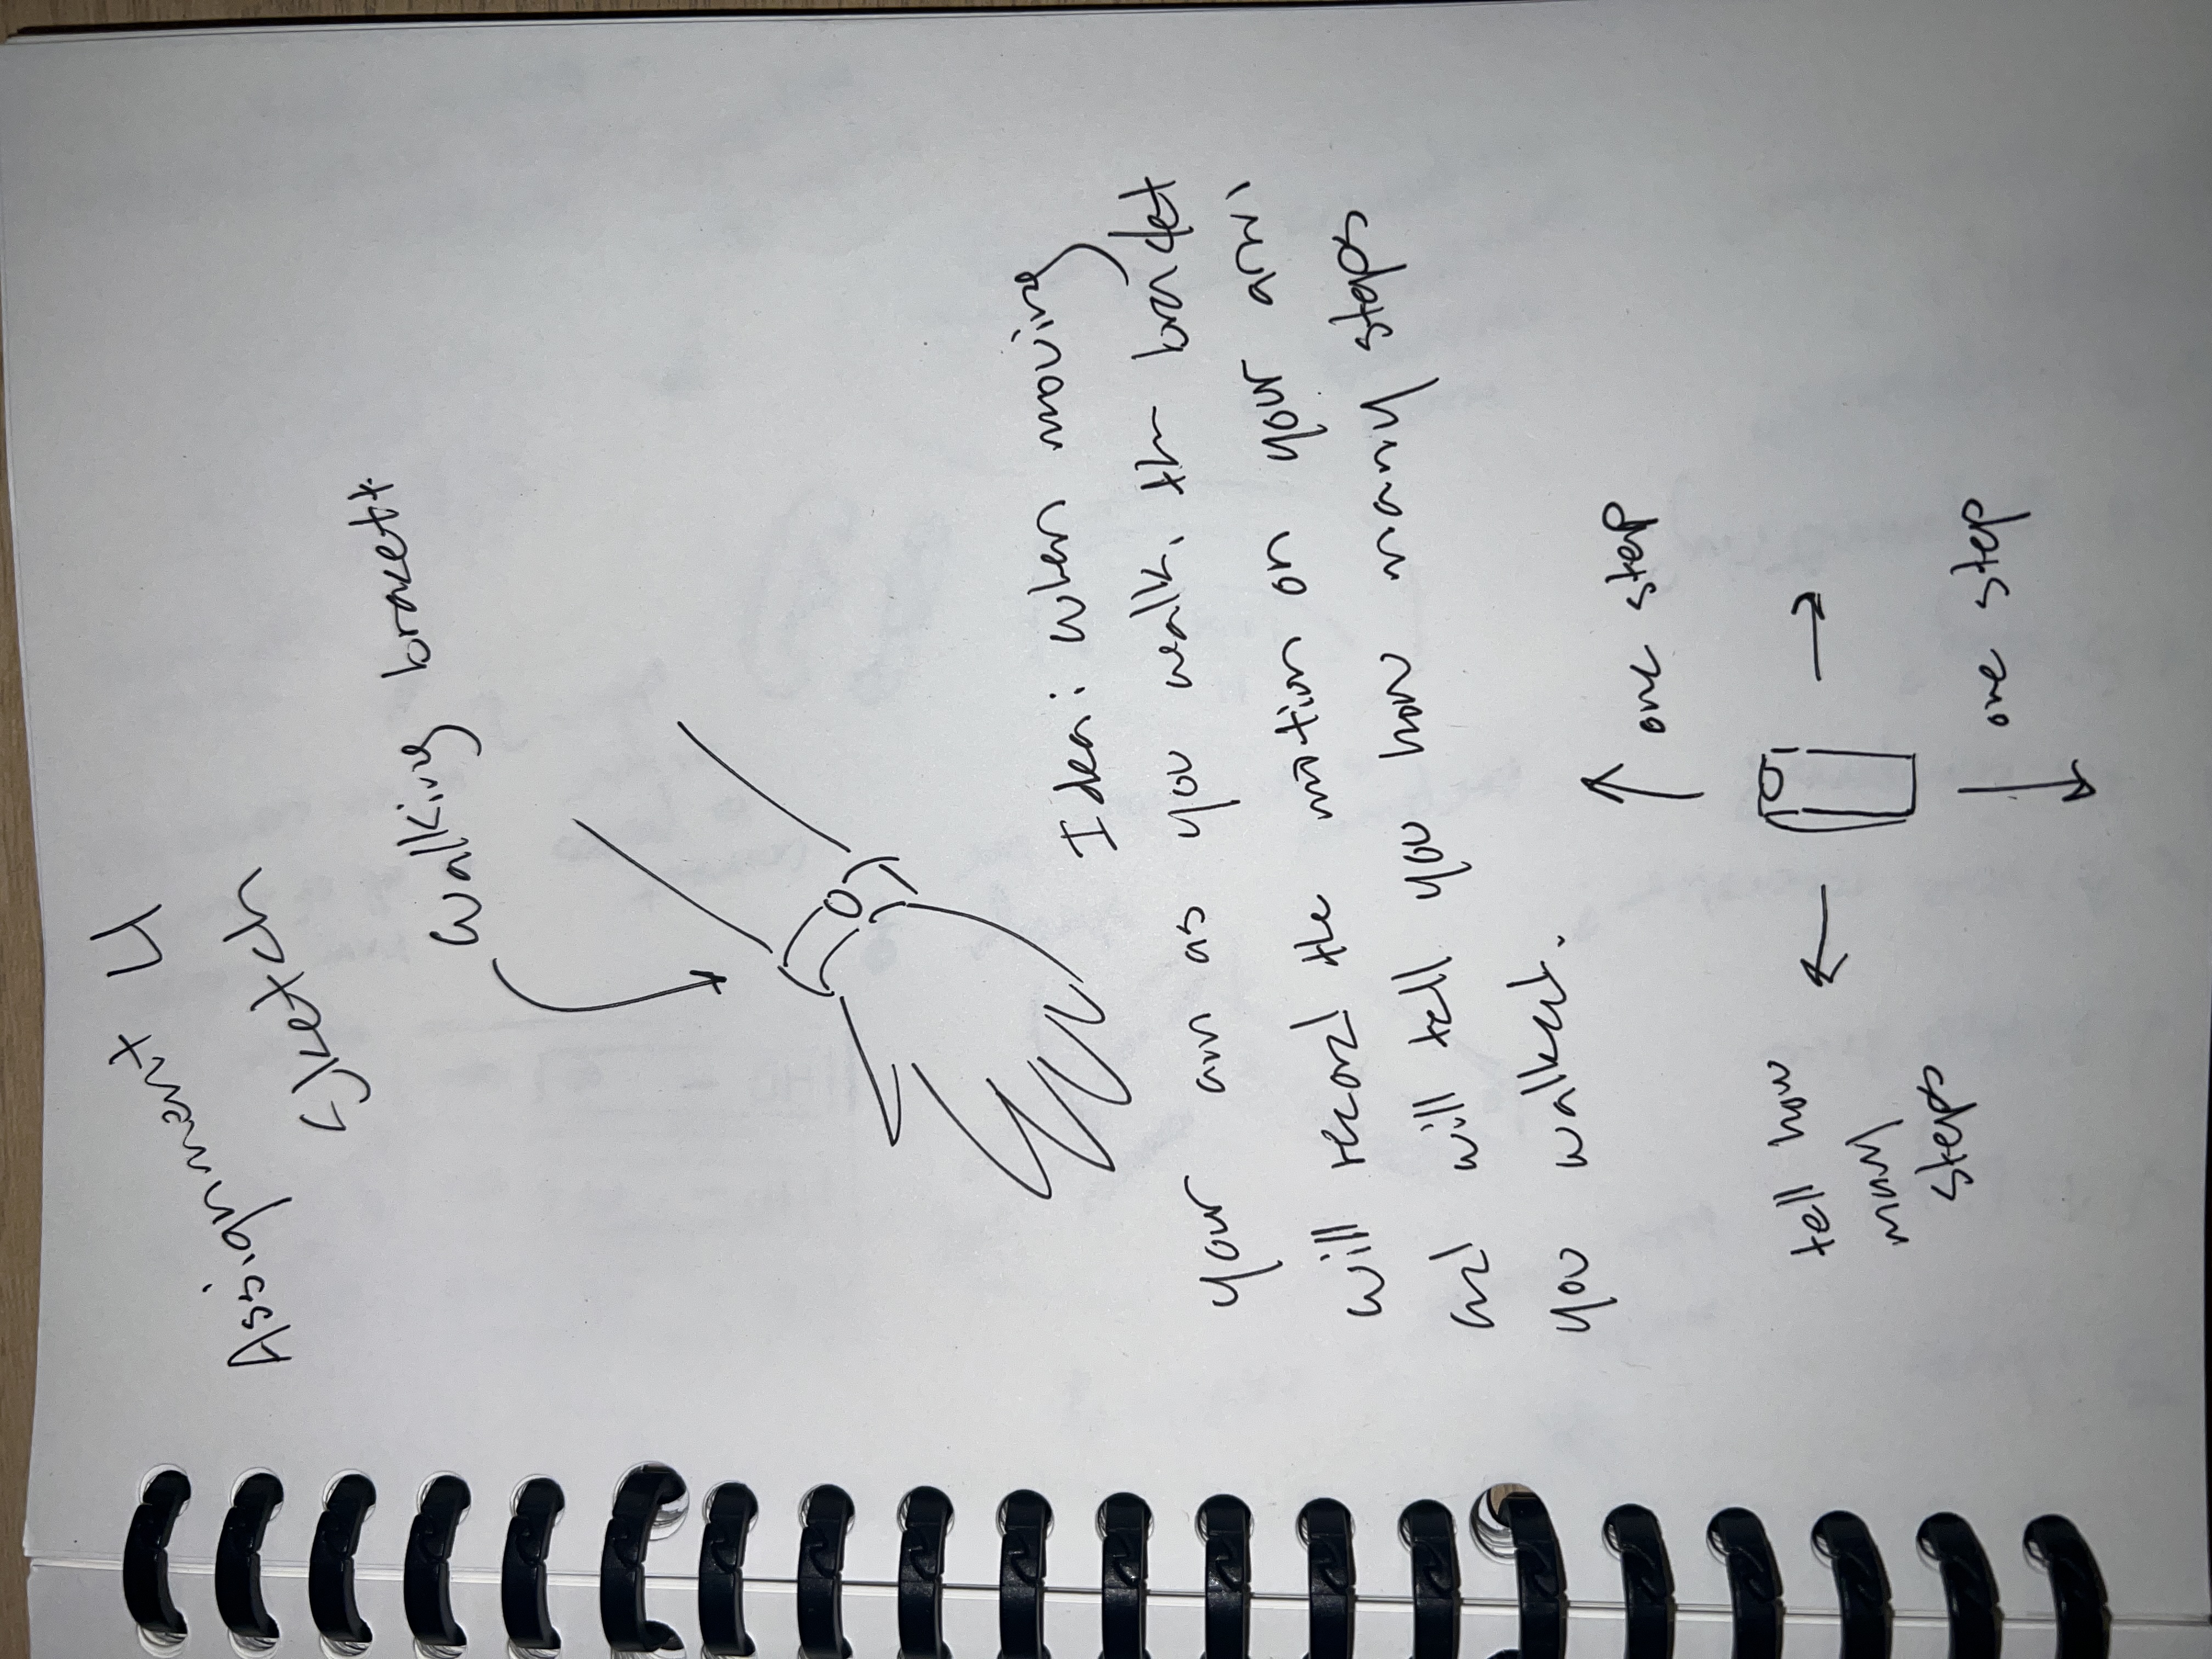 Assignment 4
Sketch
Walking bracett
Idea: when moving
your arm as you walk, the bracket
will record the motion on your arm,
and will tell you how many steps
you walked.
one step
tell how
many
steps
one step